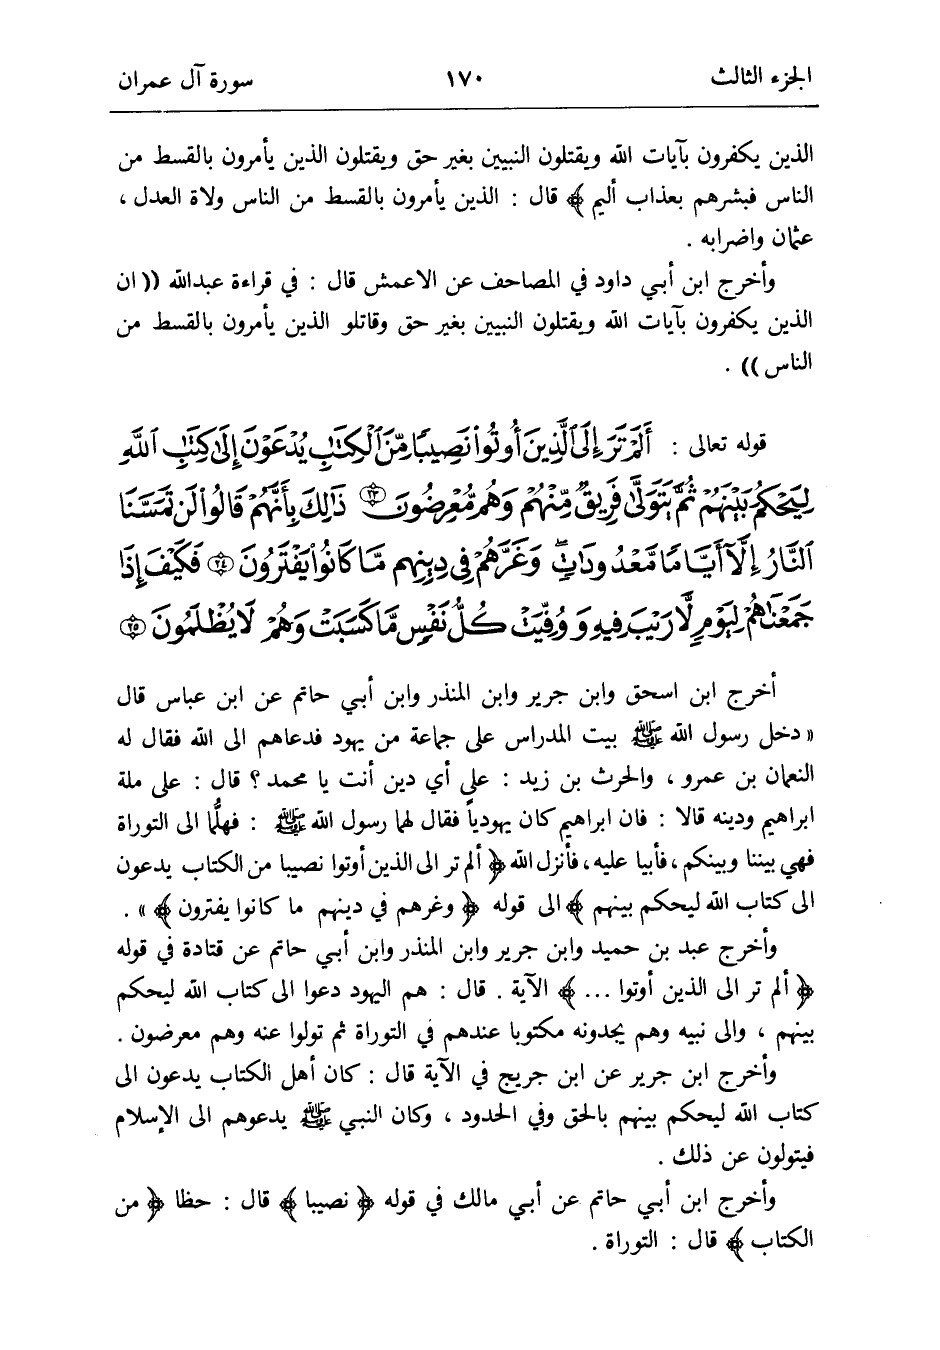 الجزء الثالث ١٧٠ سورة آل عمران
الذين يكفرون بآيات الله ويقتلون النبيين بغير حق ويقتلون الذين يأمرون بالقسط من
الناس فبشرهم بعذاب أليم ﴾ قال : الذين يأمرون بالقسط من الناس ولاة العدل ،
عثمان واضرابه .
وأخرج ابن أبي داود في المصاحف عن الاعمش قال : في قراءة عبدالله (( ان
الذين يكفرون بآيات الله ويقتلون النبيين بغير حق وقاتلو الذين يأمرون بالقسط من
الناس )) .
قوله تعالى : أَلَمْ تَرَ إِلَى ٱلَّذِينَ أُوتُوا۟ نَصِيبًا مِّنَ ٱلْكِتَٰبِ يُدْعَوْنَ إِلَىٰ كِتَٰبِ ٱللَّهِ
لِيَحْكُمَ بَيْنَهُمْ ثُمَّ يَتَوَلَّىٰ فَرِيقٌ مِّنْهُمْ وَهُم مُّعْرِضُونَ ﴿٢٣﴾ ذَٰلِكَ بِأَنَّهُمْ قَالُوا۟ لَن تَمَسَّنَا
ٱلنَّارُ إِلَّآ أَيَّامًا مَّعْدُودَٰتٍ ۖ وَغَرَّهُمْ فِى دِينِهِم مَّا كَانُوا۟ يَفْتَرُونَ ﴿٢٤﴾ فَكَيْفَ إِذَا
جَمَعْنَٰهُمْ لِيَوْمٍ لَّا رَيْبَ فِيهِ وَوُفِّيَتْ كُلُّ نَفْسٍ مَّا كَسَبَتْ وَهُمْ لَا يُظْلَمُونَ ﴿٢٥﴾
أخرج ابن اسحق وابن جرير وابن المنذر وابن أبي حاتم عن ابن عباس قال
« دخل رسول الله ﷺ بيت المدراس على جماعة من يهود فدعاهم الى الله فقال له
النعمان بن عمرو ، والحرث بن زيد : على أي دين أنت يا محمد ؟ قال : على ملة
ابراهيم ودينه قالا : فان ابراهيم كان يهودياً فقال لهما رسول الله ﷺ : فهلُما الى التوراة
فهي بيننا وبينكم ، فأبيا عليه ، فأنزل الله ﴿ ألم تر الى الذين أوتوا نصيبا من الكتاب يدعون
الى كتاب الله ليحكم بينهم ﴾ الى قوله ﴿ وغرهم في دينهم ما كانوا يفترون ﴾ » .
وأخرج عبد بن حميد وابن جرير وابن المنذر وابن أبي حاتم عن قتادة في قوله
﴿ ألم تر الى الذين أوتوا ... ﴾ الآية . قال : هم اليهود دعوا الى كتاب الله ليحكم
بينهم ، والى نبيه وهم يجدونه مكتوبا عندهم في التوراة ثم تولوا عنه وهم معرضون .
وأخرج ابن جرير عن ابن جريج في الآية قال : كان أهل الكتاب يدعون الى
كتاب الله ليحكم بينهم بالحق وفي الحدود ، وكان النبي ﷺ يدعوهم الى الإسلام
فيتولون عن ذلك .
وأخرج ابن أبي حاتم عن أبي مالك في قوله ﴿ نصيبا ﴾ قال : حظا ﴿ من
الكتاب ﴾ قال : التوراة .